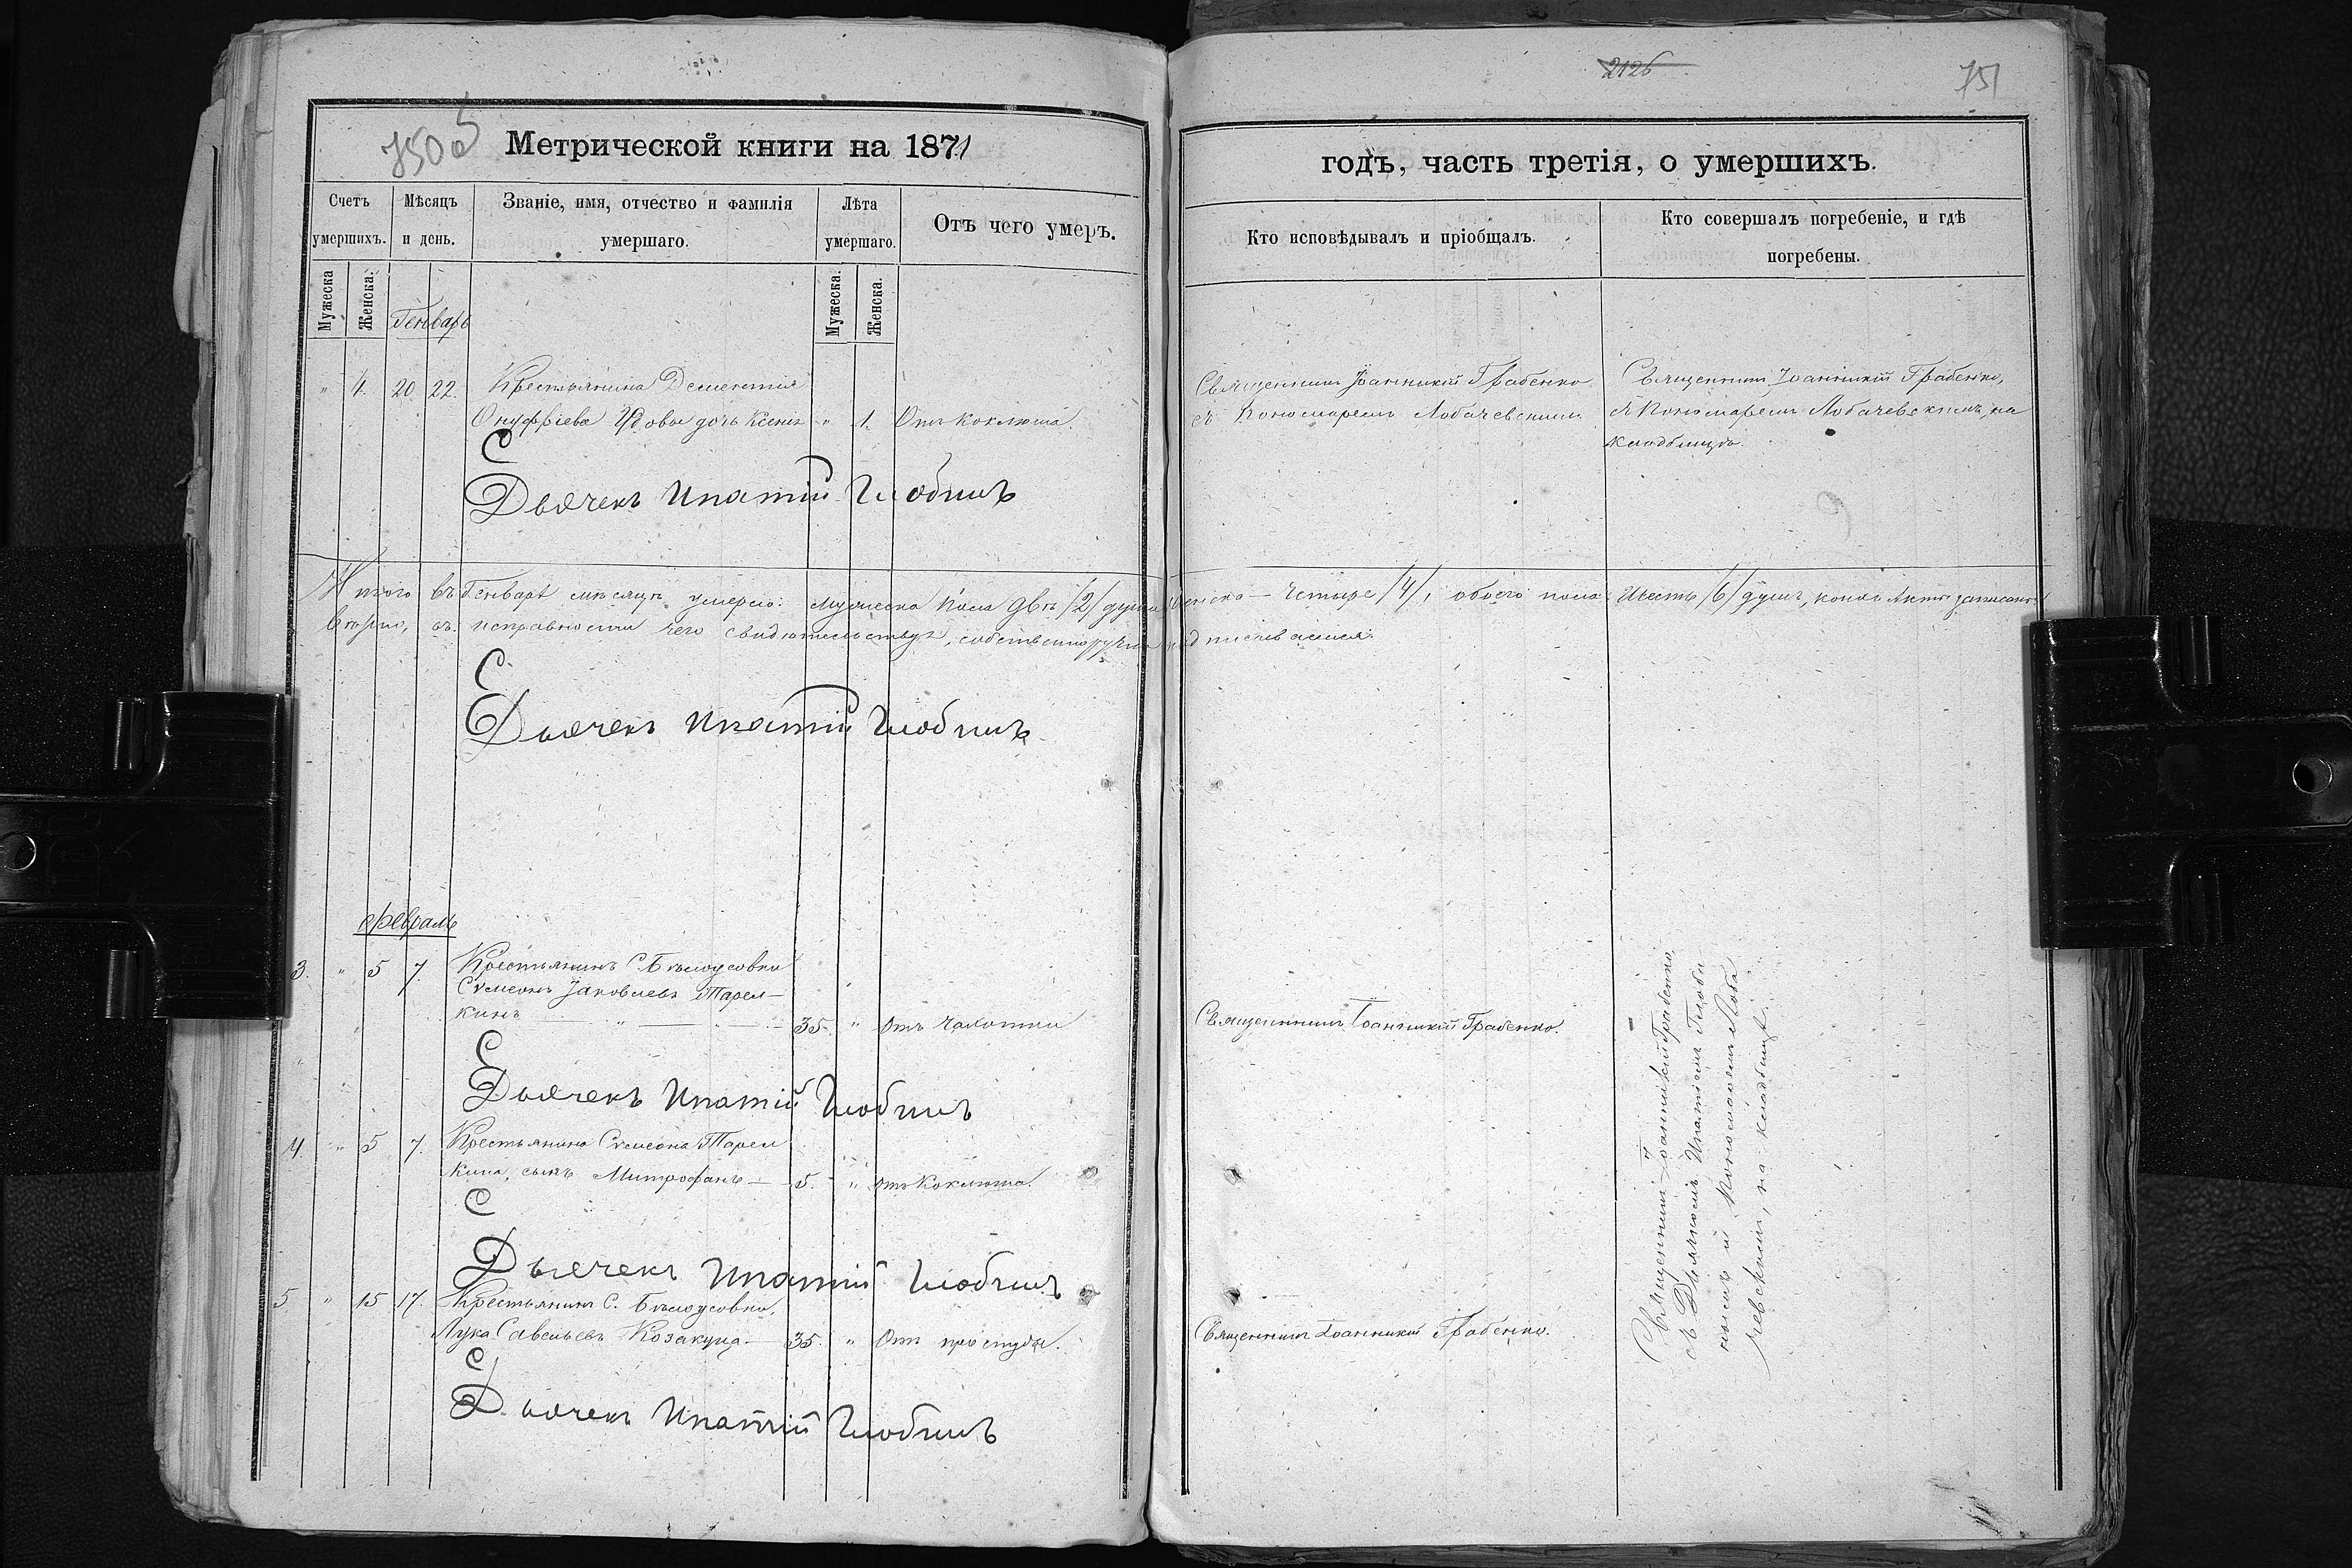 2126
751
750 об
Метрической книги на 1871
годъ, часть третія, о умершихъ.
Счетъ умершихъ.
Мѣсяцъ и день.
Званіе, имя, отчество и фамилія умершаго.
Лѣта умершаго.
Отъ чего умеръ.
Кто исповѣдывалъ и пріобщалъ.
Кто совершалъ погребеніе, и гдѣ погребены.
Мужеска
Женска.
Мужеска.
Женска.
Генварь
" 4. 20 22. Крестьянина Дементія
Онуфріева дочь Ксенія " 1. Отъ коклюша.
Священникъ Іоанникій Грабенко
съ Пономаремъ Лобачевскимъ
Священникъ Іоанникій Грабенко,
съ Пономаремъ Лобачевскимъ, на
кладбищѣ.
Дьячекъ Ипатій
Итого въ Генварѣ мѣсяцѣ умерло: мужеска пола двѣ /2/ души женска — четыре /4/, обоего пола шесть /6/ душъ, коихъ акты записаны
вѣрно, въ исправности чего свидѣтельствуя, собственноручно подписываемся.
Дьячекъ Ипатій
Февраль
3. " 5 7. Крестьянинъ С. Бѣлоусовки
Сѵмеонъ Іаковлевъ Тарел-
кинъ 35. " отъ чахотки
Священникъ Іоанникій Грабенко.
Дьячекъ Ипатій
4. " 5 7. Крестьянина Сѵмеона Тарел
кина, сынъ Митрофанъ — 5. " отъ коклюша.
Дьячекъ Ипатій
5 " 15 17. Крестьянинъ С. Бѣлоусовки,
Лука Савельевъ Козакуца — 35. " Отъ простуды.
Священникъ Іоанникій Грабенко.
Дьячекъ Ипатій
Священникъ Іоанникій Грабенко
съ Дьячкомъ Ипатіемъ
и Пономаремъ Лоба
чевскимъ, на кладбищѣ.